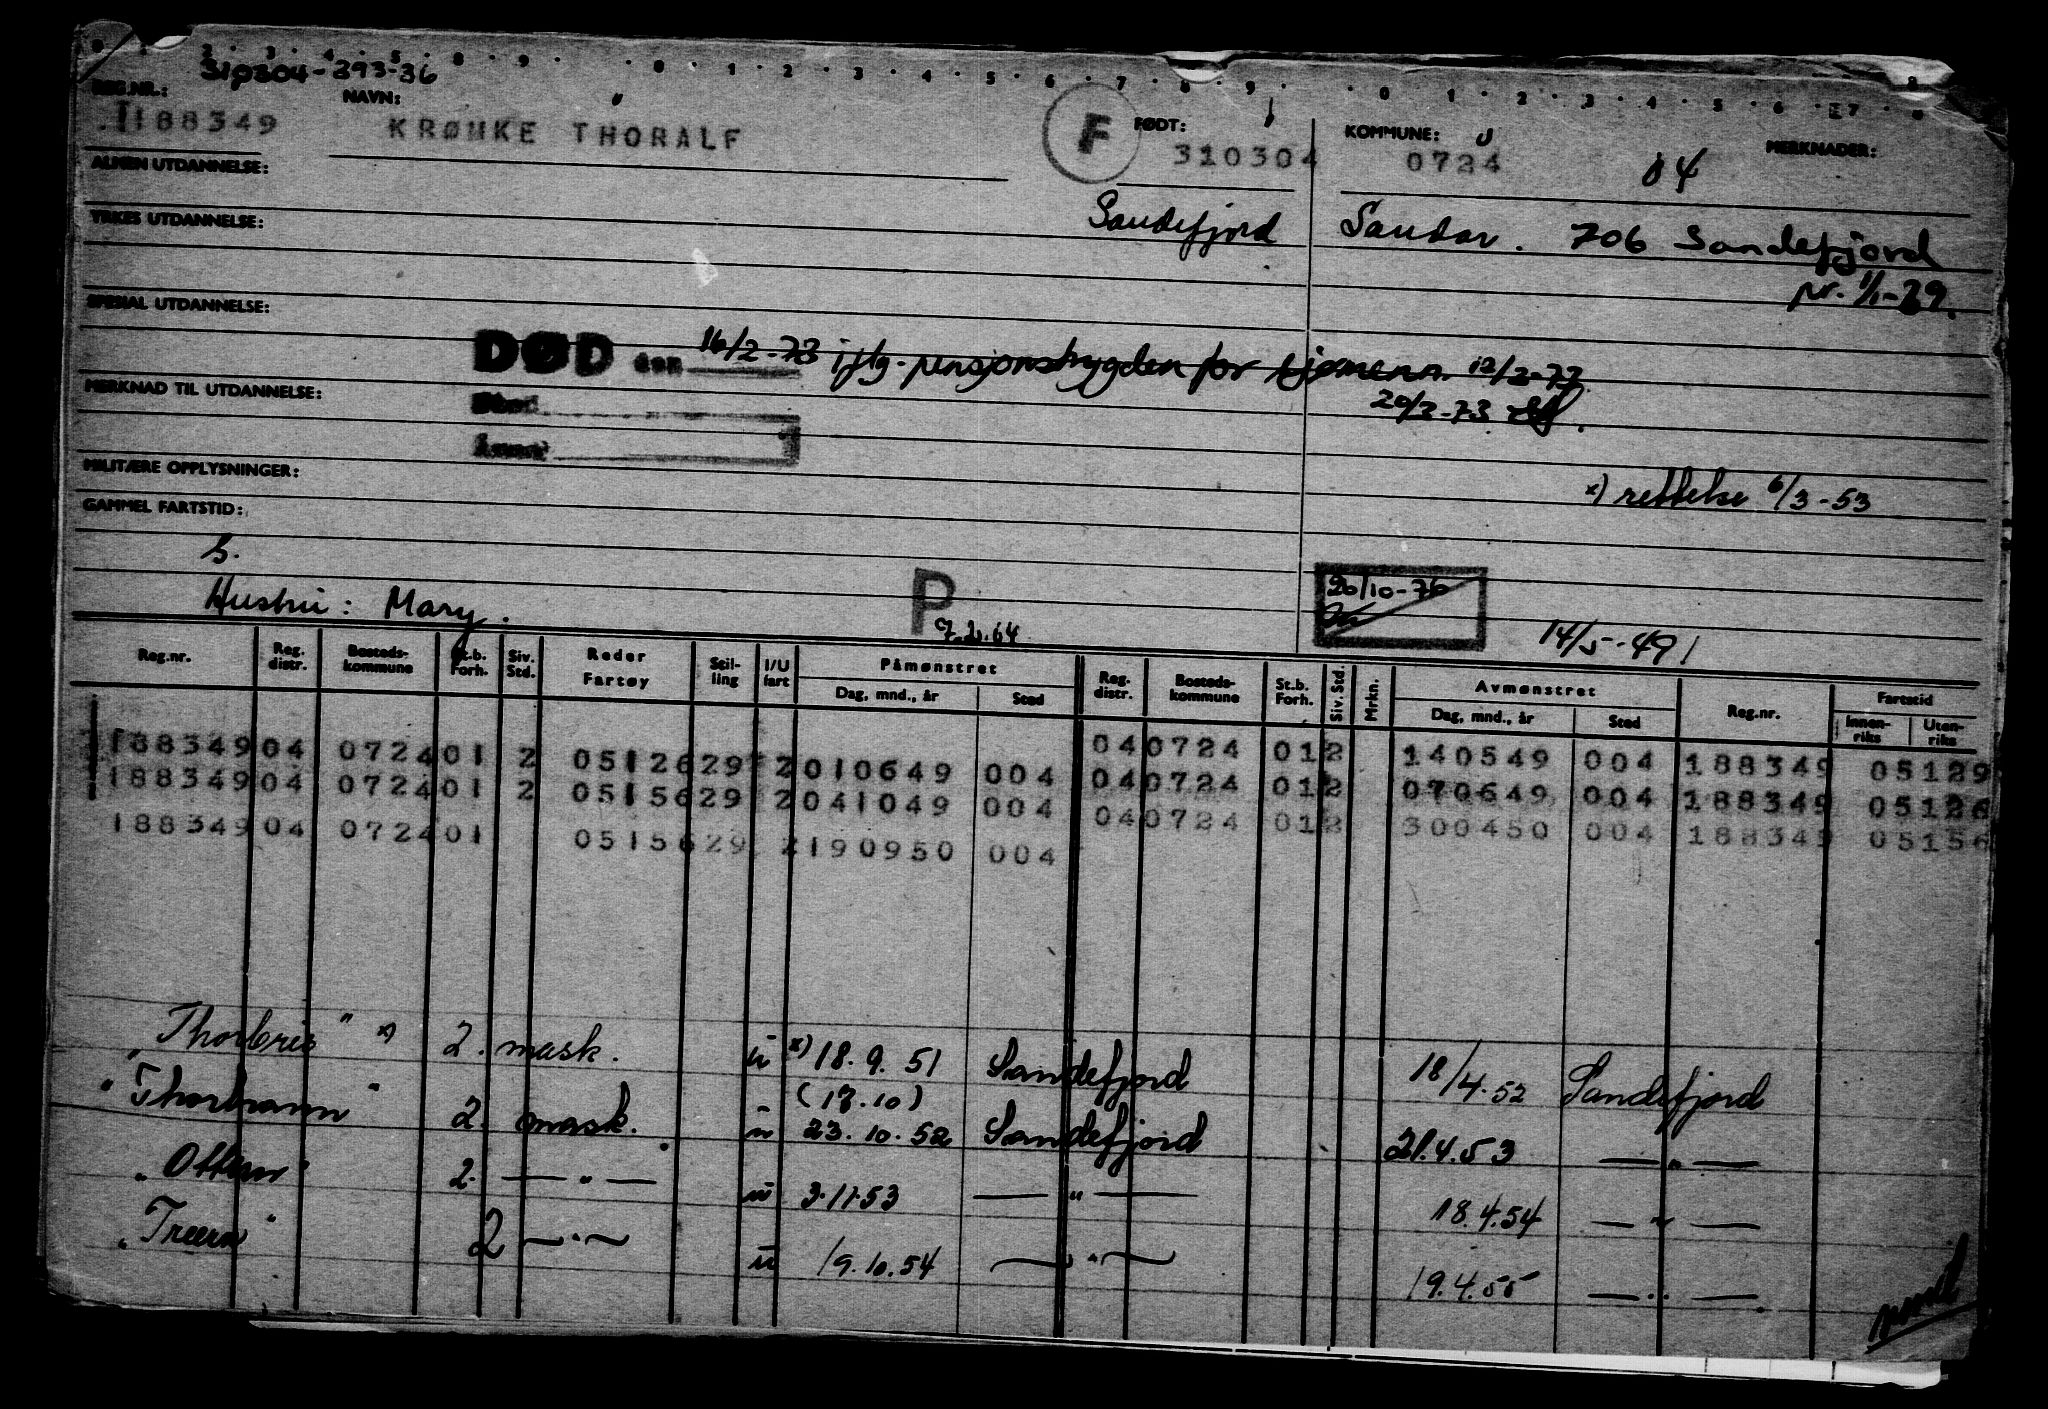 310304-293-36
REG.NR.: NAVN: FØDT: KOMMUNE: MERKNADER:
188349 KRØNKE THORALF F 310304 0724 04
ALMEN UTDANNELSE:
Sandefjord Sandar. 706 Sandefjord
YRKES UTDANNELSE:
pr. 1/1-29.
SPESIAL UTDANNELSE:
DØD den 16/2-73 iflg. pensjonstrygden for Tjømenn. 12/3-73
20/3-73
MERKNAD TIL UTDANNELSE:
MILITÆRE OPPLYSNINGER:
x) rettelse 6/3-53
GAMMEL FARTSTID:
S.
Hustru: Mary.
P
7.2.64
20/10-76
14/5-49
Reg.nr. Reg. distr. Bosteds-kommune St.b. Forh. Siv. Std. Reder Fartøy Stil-ling I/U fart Påmønstret Dag, mnd., år Sted Reg. distr. Bosteds-kommune St.b. Forh. Siv. Std. Mrkn. Avmønstret Dag, mnd., år Sted Reg.nr. Fartstid Innen-riks Uten-riks
040724 012 140549 004 188349 05129
188349 04 0724 01 2 0512629 2 010649 004 040724 012 070649 004 188349 05126
188349 04 0724 01 2 0515629 2 041049 004 040724 012 300450 004 188349 05156
188349 04 0724 01 0515629 2 190950 004
"Thorbris" x) 2. mask. u x) 18. 9. 51 Sandefjord 18/4.52 Sandefjord
(17.10)
"Thorhavn" 2. mask. u 23. 10. 52 Sandefjord 21.4.53 — " —
"Ottern" 2. — " — u 3.11.53 — " — 18.4.54 — " —
"Treern" 2 — " — u 19.10.54 — " — 19.4.55 — " —